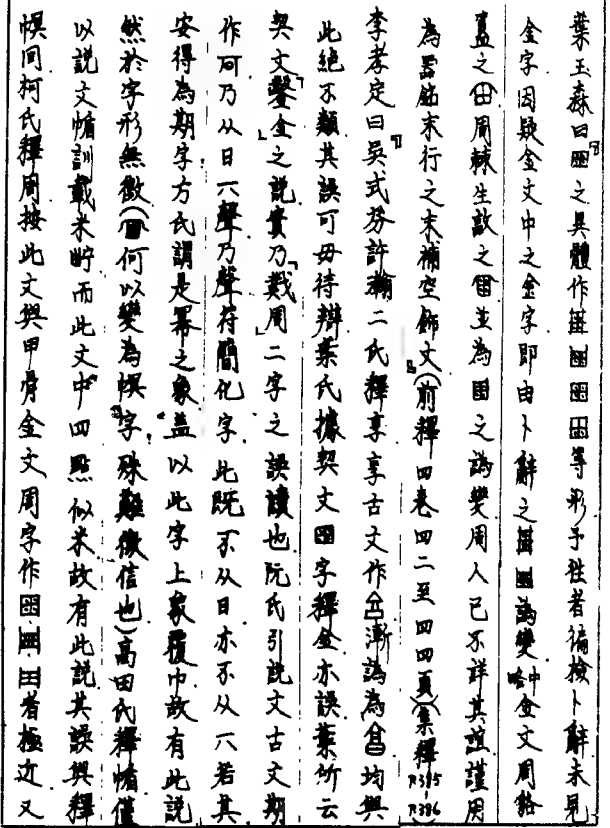 葉玉森曰「之異體作等形予往者徧檢卜辭未見
金字因疑金文中之金字即由卜辭之譌變金文中周輅
蓋之周棘生㪤之並為之譌變周人已不詳其誼謹用
為器銘末行之末補空飾文」(前釋四卷四二至四四頁)集釋P.385-P.386
李孝定曰「吳式芬許瀚二氏釋享享古文作漸譌為均與
此絕不類其誤可毋待辯葉氏據契文字釋金亦誤葉所云
契文「鑿金」之說實乃「戴周」二字之誤讀也阮氏引說文古文期
作乃从日六聲乃聲符簡化字此既不从日亦不从六若其
安得為期字方氏謂是冪之象蓋以此字上象覆巾故有此說
然於字形無徵(何以變為幎字殊難徵信也)高田氏釋幡僅
以說文幡訓載米䉛而此文中四點似米故有此說其誤與釋
幎同柯氏釋周按此文與甲骨金文周字作者極近又